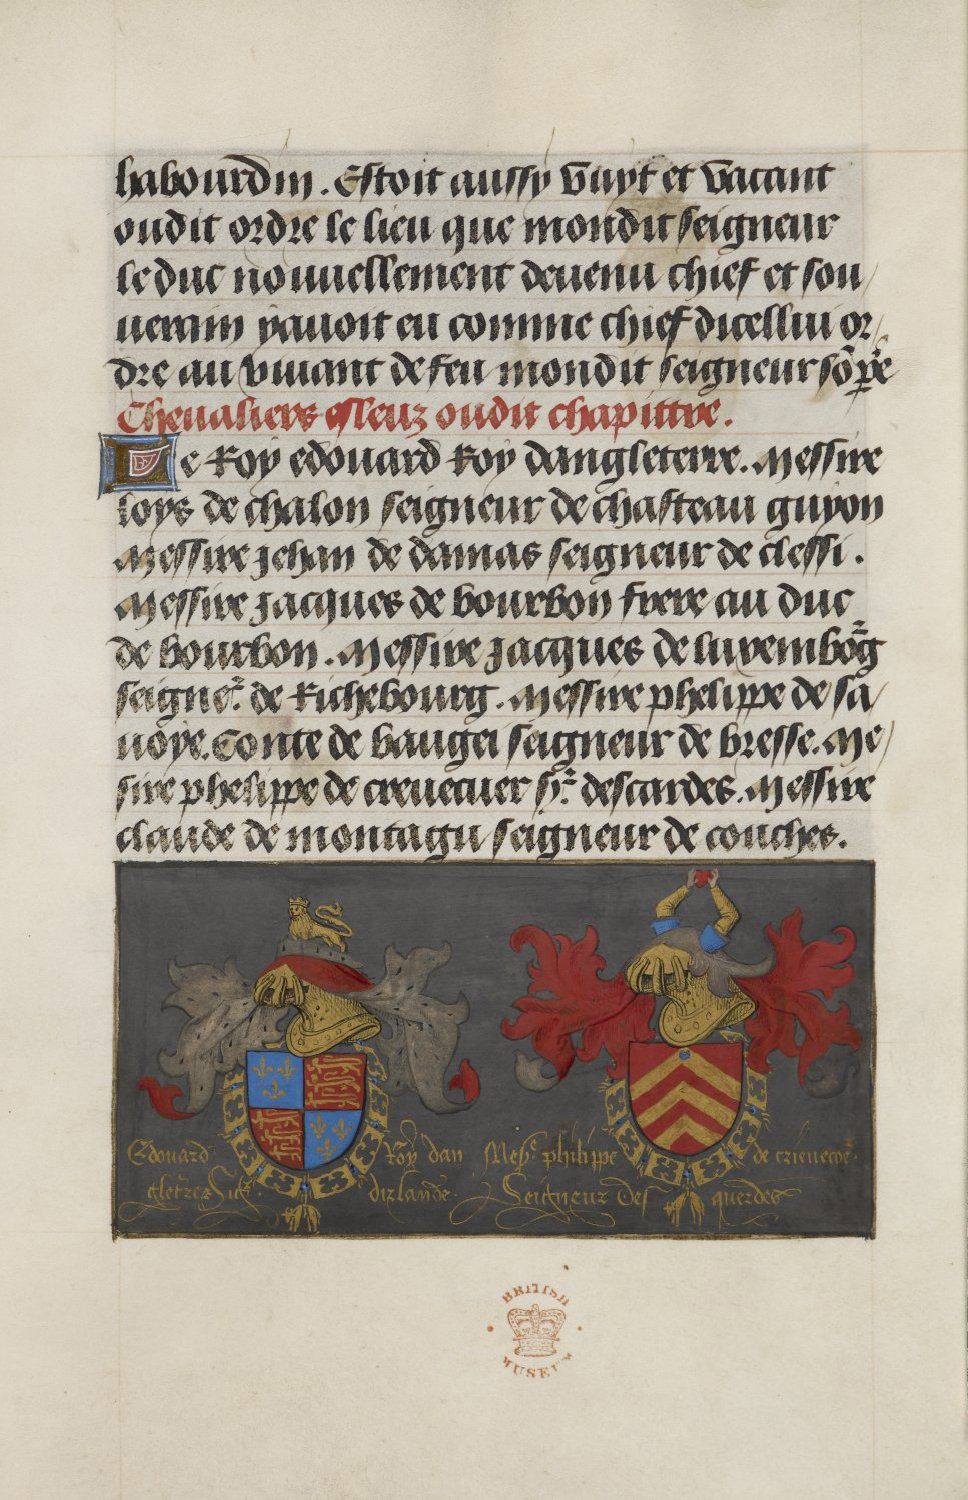 habourdin. Estoit aussy vuyt et vacant
oudit ordre le lieu que mondit seigneur
le duc nouuellement deuenu chief et sou/
uerain y auoit eu comme chief dicelluy or/
dre au viuant de feu mondit seigneur so pe
Cheualiers esleuz oudit chapittre.
Le Roy edouard Roy dangleterre. Messire
loys de chalon seigneur de chasteau guyon
Messire Jehan de damas seigneur de clessi.
Messire Jacques de bourbon frere au duc
de bourbon. Messire Jacques de luxembog
seigne. de Richebourg. Messire phelippe de sa/
uoye. Conte de baugei seigneur de bresse. Me/
sire phelippe de creuecuer sr. descardes. Messire
claude de montagu seigneur de couches.
Edouard Roy dan
gleterre dirlande.
Mess. philippe de
Seigneur des querdes
BRITISH
MUSEUM